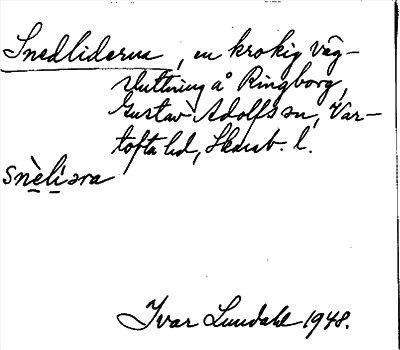 Snedliderna, en krokig väg-
sluttning å Ringborg,
Gustav Adolfs sn, Var-
tofta hd, Skarab. l.
snèli̇̀əra
Ivar Lundahl 1948.